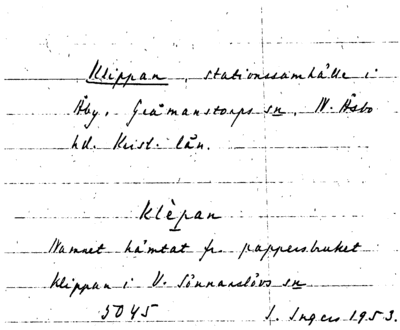 Klippan, stationssamhälle i
Åby, Gråmanstorps sn, N. Åsbo
hd. Krist. län.
Klèpan
Namnet hämtat fr. pappersbruket
Klippan i V. Sönnarslövs sn
5045 I. Ingers 1953.